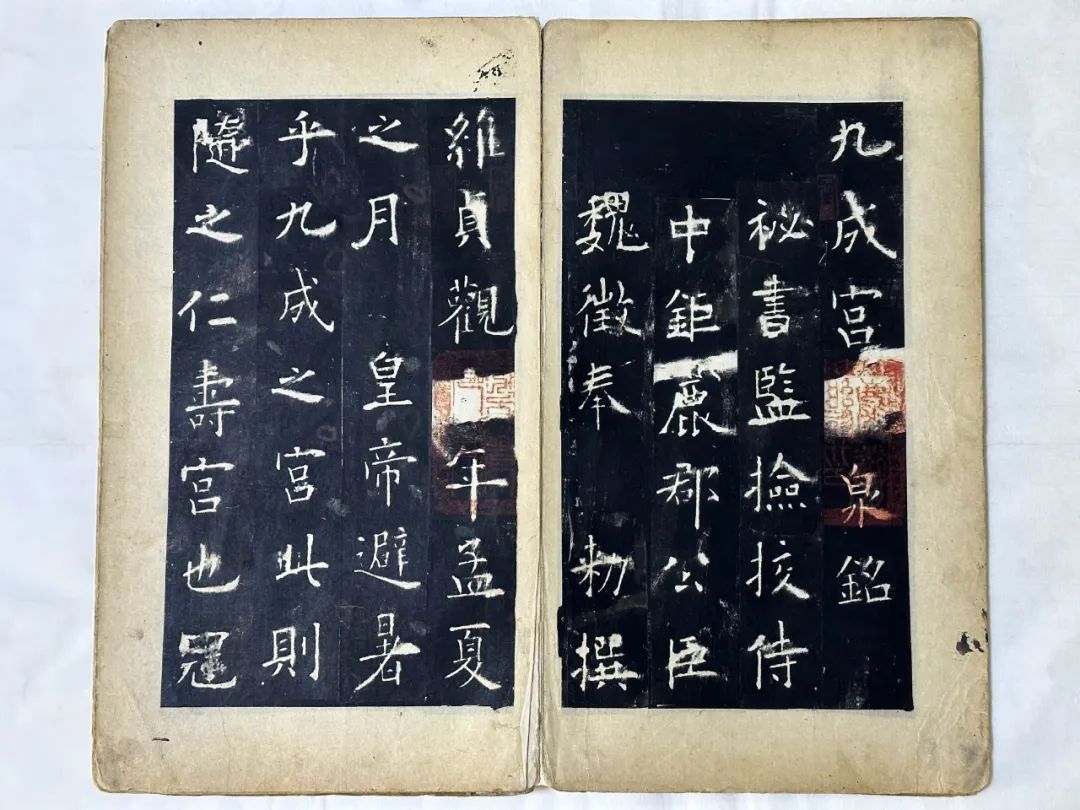 九成宮泉銘
祕書監撿挍侍
中鉅鹿郡公臣
魏徵奉勑撰
維貞觀年孟夏
之月皇帝避暑
乎九成之宮此則
隨之仁壽宮也冠